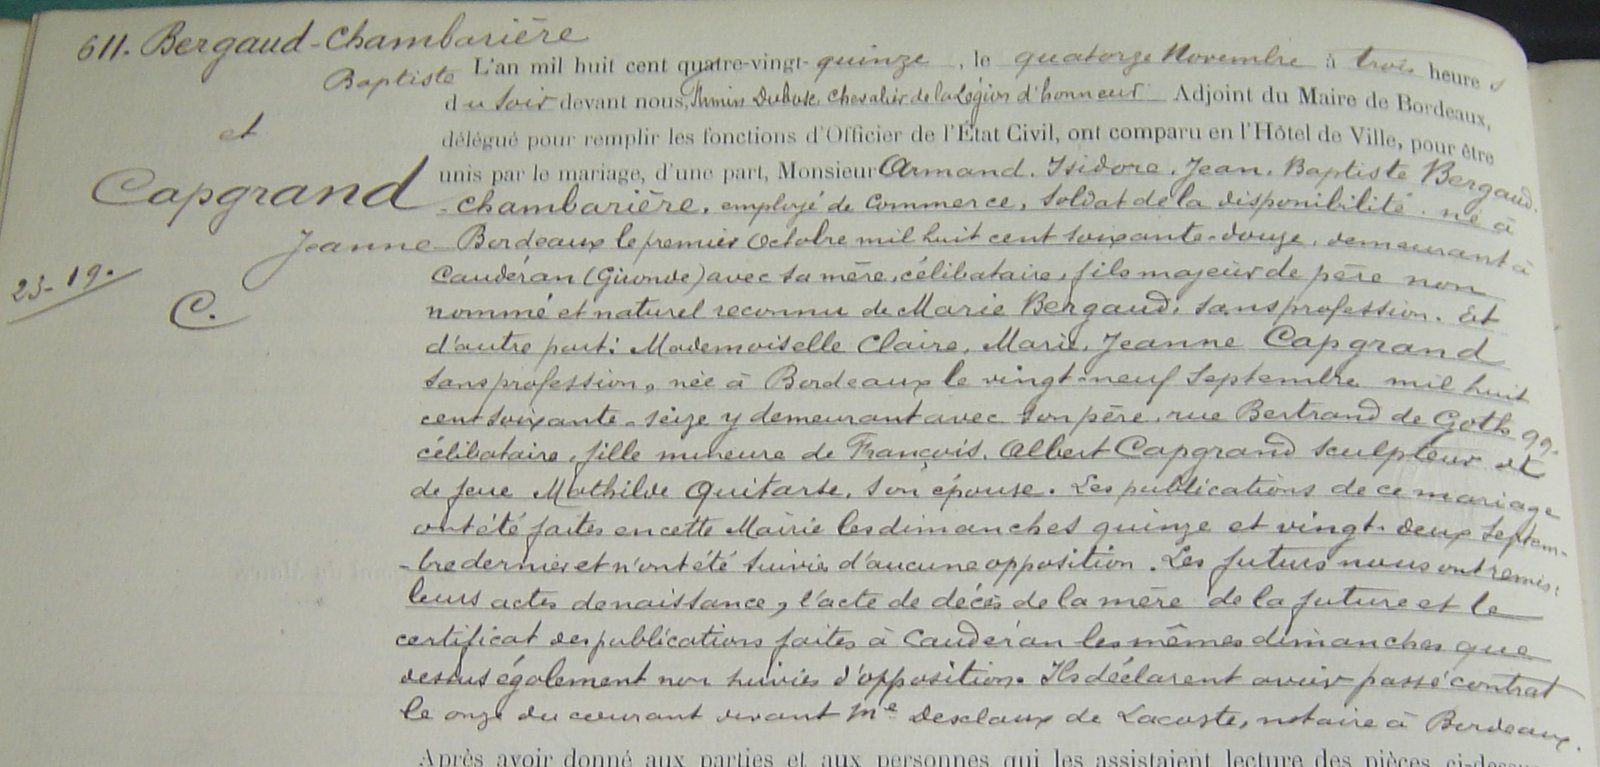 611. Bergaud-Chambarière
Baptiste
et
Capgrand
Jeanne
23-19.
C.
L'an mil huit cent quatre-vingt-quinze, le quatorze Novembre à trois heures
du soir devant nous, Dubosc Chevalier de la Légion d'honneur Adjoint du Maire de Bordeaux,
délégué pour remplir les fonctions d'Officier de l'État Civil, ont comparu en l'Hôtel de Ville, pour être
unis par le mariage, d'une part, Monsieur Armand, Isidore, Jean, Baptiste Bergaud-
-Chambarière, employé de Commerce, Soldat de la disponibilité, né à
Bordeaux le premier Octobre mil huit cent soixante-douze, demeurant à
Caudéran (Gironde) avec sa mère, célibataire, fils majeur de père non
nommé et naturel reconnu de Marie Bergaud, sans profession. Et
d'autre part: Mademoiselle Claire, Marie, Jeanne Capgrand
sans profession, née à Bordeaux le vingt-neuf Septembre mil huit
cent soixante-seize y demeurant avec son père, rue Bertrand de Goth 99.
célibataire, fille mineure de François, Albert Capgrand sculpteur et
de feue Mathilde Quitarse, son épouse. Les publications de ce mariage
ont été faites en cette Mairie les dimanches quinze et vingt-deux Septem-
-bre dernier et n'ont été suivies d'aucune opposition. Les futurs nous ont remis:
leurs actes de naissance, l'acte de décès de la mère de la future et le
certificat des publications faites à Caudéran les mêmes dimanches que
dessus également non suivies d'opposition. Ils déclarent avoir passé contrat
le onze du courant devant Me Desclaux de Lacoste, notaire à Bordeaux.
Après avoir donné aux parties et aux personnes qui les assistaient lecture des pièces ci-dessus